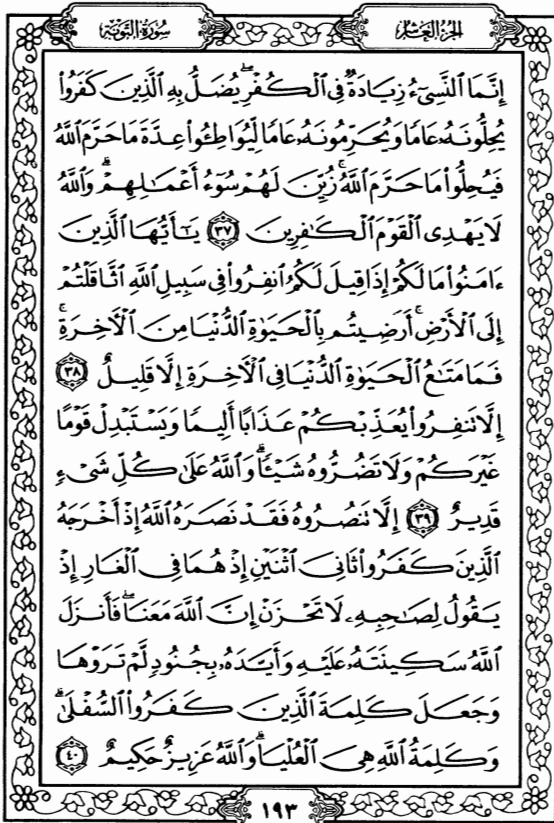 الجزء العاشر
سورة التوبة
إِنَّمَا ٱلنَّسِىٓءُ زِيَادَةٌ فِى ٱلْكُفْرِ ۖ يُضَلُّ بِهِ ٱلَّذِينَ كَفَرُوا۟
يُحِلُّونَهُۥ عَامًا وَيُحَرِّمُونَهُۥ عَامًا لِّيُوَاطِـُٔوا۟ عِدَّةَ مَا حَرَّمَ ٱللَّهُ
فَيُحِلُّوا۟ مَا حَرَّمَ ٱللَّهُ ۚ زُيِّنَ لَهُمْ سُوٓءُ أَعْمَـٰلِهِمْ ۗ وَٱللَّهُ
لَا يَهْدِى ٱلْقَوْمَ ٱلْكَـٰفِرِينَ ٣٧ يَـٰٓأَيُّهَا ٱلَّذِينَ
ءَامَنُوا۟ مَا لَكُمْ إِذَا قِيلَ لَكُمُ ٱنفِرُوا۟ فِى سَبِيلِ ٱللَّهِ ٱثَّاقَلْتُمْ
إِلَى ٱلْأَرْضِ ۚ أَرَضِيتُم بِٱلْحَيَوٰةِ ٱلدُّنْيَا مِنَ ٱلْـَٔاخِرَةِ ۚ
فَمَا مَتَـٰعُ ٱلْحَيَوٰةِ ٱلدُّنْيَا فِى ٱلْـَٔاخِرَةِ إِلَّا قَلِيلٌ ٣٨
إِلَّا تَنفِرُوا۟ يُعَذِّبْكُمْ عَذَابًا أَلِيمًا وَيَسْتَبْدِلْ قَوْمًا
غَيْرَكُمْ وَلَا تَضُرُّوهُ شَيْـًٔا ۗ وَٱللَّهُ عَلَىٰ كُلِّ شَىْءٍ
قَدِيرٌ ٣٩ إِلَّا تَنصُرُوهُ فَقَدْ نَصَرَهُ ٱللَّهُ إِذْ أَخْرَجَهُ
ٱلَّذِينَ كَفَرُوا۟ ثَانِىَ ٱثْنَيْنِ إِذْ هُمَا فِى ٱلْغَارِ إِذْ
يَقُولُ لِصَـٰحِبِهِۦ لَا تَحْزَنْ إِنَّ ٱللَّهَ مَعَنَا ۖ فَأَنزَلَ
ٱللَّهُ سَكِينَتَهُۥ عَلَيْهِ وَأَيَّدَهُۥ بِجُنُودٍ لَّمْ تَرَوْهَا
وَجَعَلَ كَلِمَةَ ٱلَّذِينَ كَفَرُوا۟ ٱلسُّفْلَىٰ ۗ
وَكَلِمَةُ ٱللَّهِ هِىَ ٱلْعُلْيَا ۗ وَٱللَّهُ عَزِيزٌ حَكِيمٌ ٤٠
١٩٣